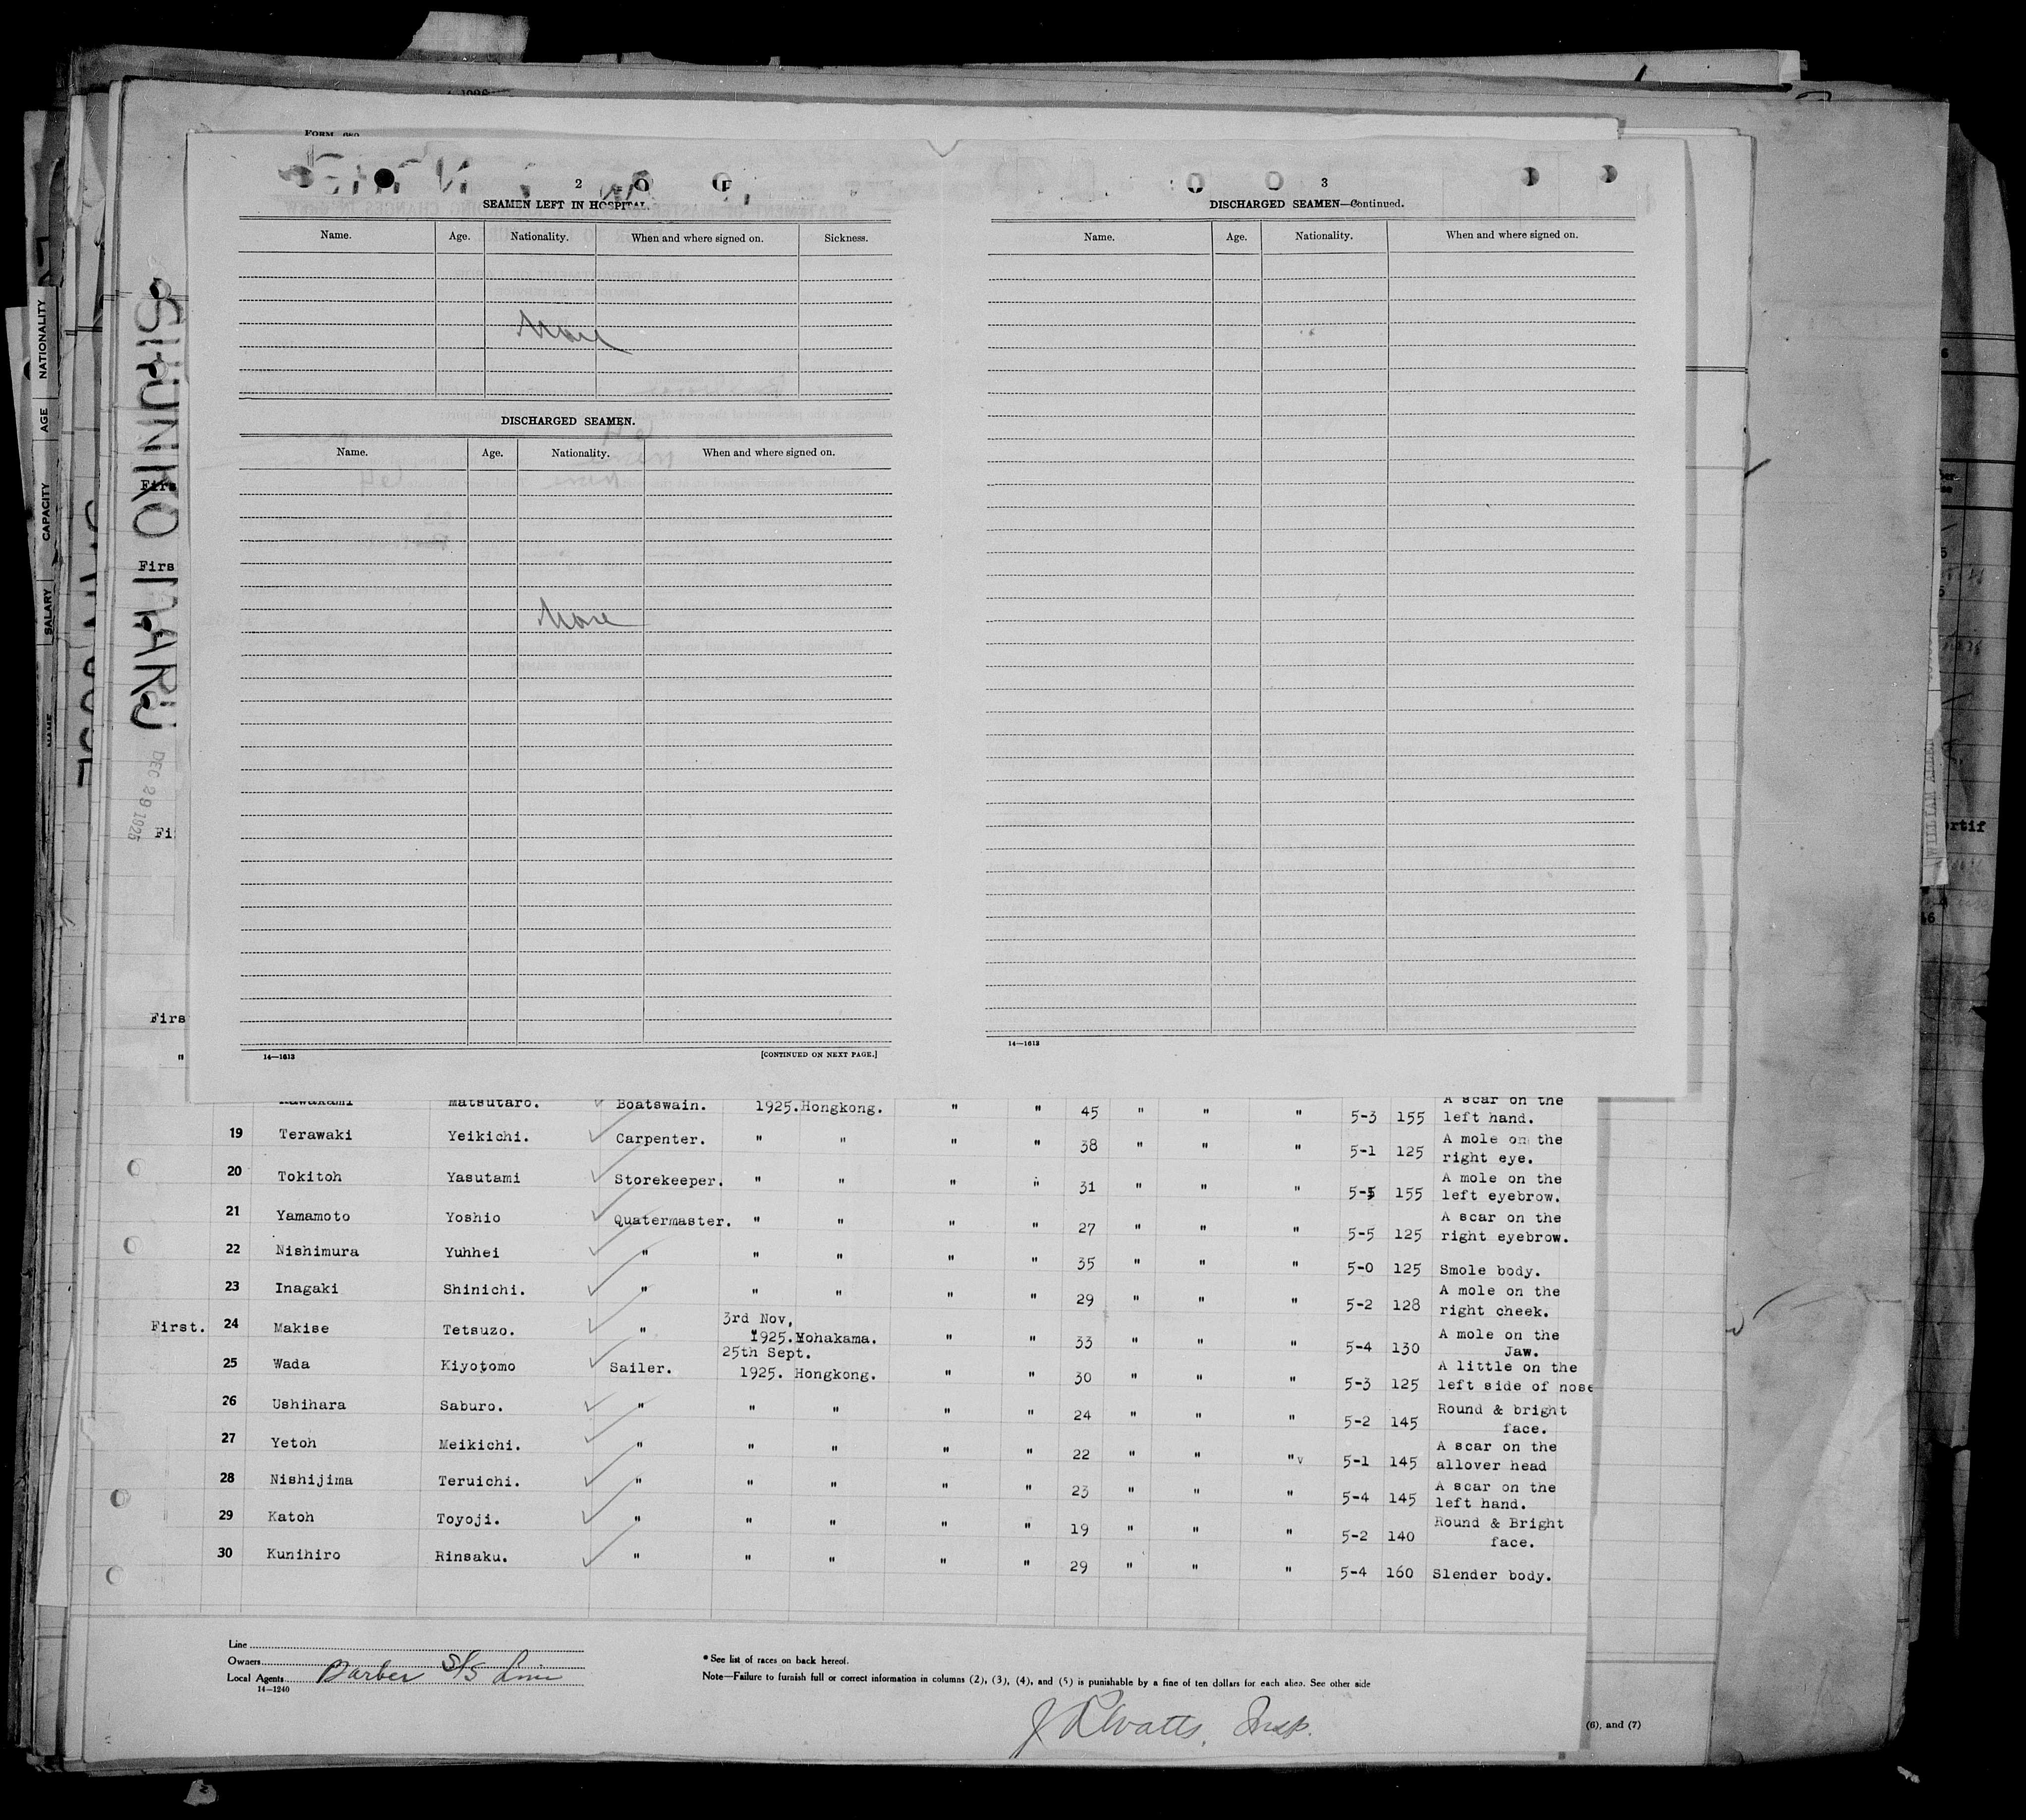 2
SEAMEN LEFT IN HOSPITAL.
Name. Age. Nationality. When and where signed on. Sickness.
None
DISCHARGED SEAMEN.
Name. Age. Nationality. When and where signed on.
None
14—1613 [CONTINUED ON NEXT PAGE.]
3
DISCHARGED SEAMEN—Continued.
Name. Age. Nationality. When and where signed on.
14—1613
NATIONALITY
AGE
CAPACITY
SALARY
NAME
MARU
DEC 29 1925
Firs
Firs
Fi
Firs
"
Kawakami Matsutaro. Boatswain. 1925.Hongkong. " " 45 " " " 5-3 155 A scar on the
left hand.
19 Terawaki Yeikichi. Carpenter. " " " " 38 " " " 5-1 125 A mole on the
right eye.
20 Tokitoh Yasutami Storekeeper. " " " " 31 " " " 5-5 155 A mole on the
left eyebrow.
21 Yamamoto Yoshio Quatermaster. " " " " 27 " " " 5-5 125 A scar on the
right eyebrow.
22 Nishimura Yuhhei " " " " " 35 " " " 5-0 125 Smole body.
23 Inagaki Shinichi. " " " " " 29 " " " 5-2 128 A mole on the
right cheek.
3rd Nov,
First. 24 Makise Tetsuzo. " 1925.Yohakama. " " 33 " " " 5-4 130 A mole on the
Jaw.
25th Sept.
25 Wada Kiyotomo Sailer. 1925. Hongkong. " " 30 " " " 5-3 125 A little on the
left side of nose
26 Ushihara Saburo. " " " " " 24 " " " 5-2 145 Round & bright
face.
27 Yetoh Meikichi. " " " " " 22 " " " 5-1 145 A scar on the
allover head
28 Nishijima Teruichi. " " " " " 23 " " " 5-4 145 A scar on the
left hand.
29 Katoh Toyoji. " " " " " 19 " " " 5-2 140 Round & Bright
face.
30 Kunihiro Rinsaku. " " " " " 29 " " " 5-4 160 Slender body.
Line
Owners
Local Agents Barber S/S Line
14—1240
* See list of races on back hereof.
Note—Failure to furnish full or correct information in columns (2), (3), (4), and (5) is punishable by a fine of ten dollars for each alien. See other side
Watts, Insp.
(6), and (7)